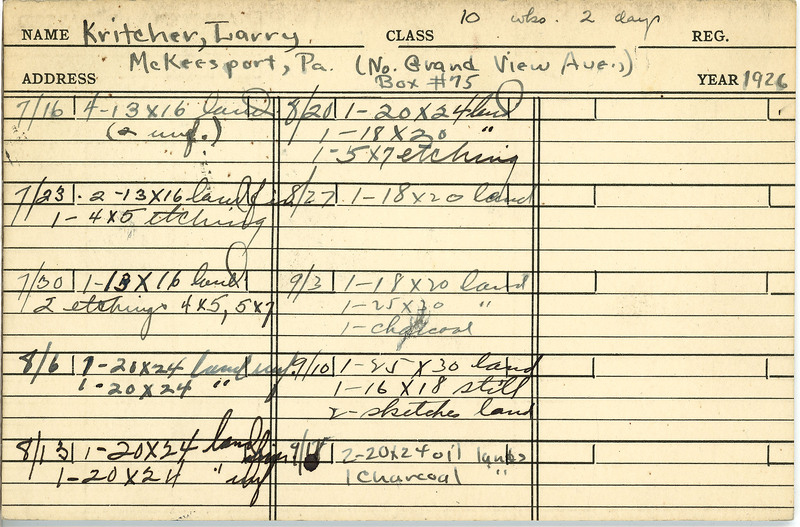 NAME Kritcher, Larry. CLASS 10 wks. 2 days REG.
ADDRESS McKeesport, Pa. (No. Grand View Ave.,)
Box #75 YEAR 1926
7/16 4-13x16 land
(2 unf.)
7/23 2-13x16 land
1-4x5 etching
7/30 1-13x16 land
2 etchings 4x5, 5x7
8/6 1-20x24 land unf.
1-20x24 "
8/13 1-20x24 land
1-20x24 " unf
8/20 1-20x24 land
1-18x20 "
1-5x7 etching
8/27 1-18x20 land
9/3 1-18x20 land
1-25x30 "
1-charcoal
9/10 1-25x30 land
1-16x18 still
2-sketches land
2-20x24 oil lands
1 Charcoal "